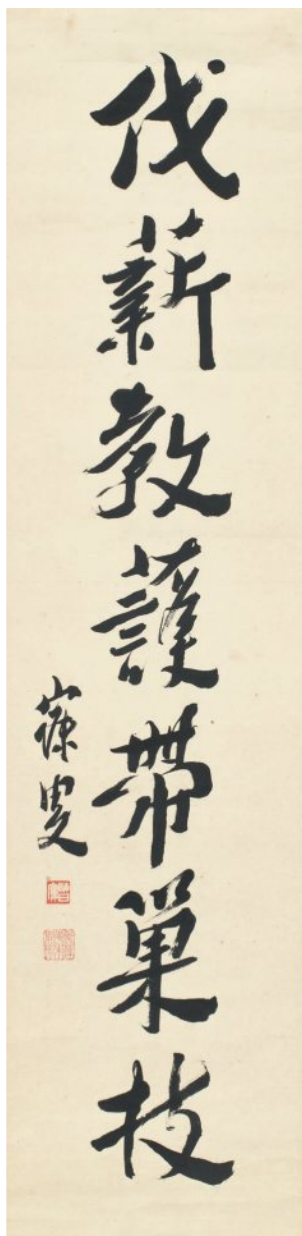 伐薪教護帶巢枝
寐叟